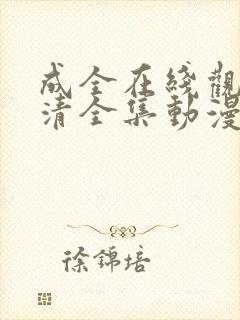 成全在綫觀
清全集動漫
徐錦培